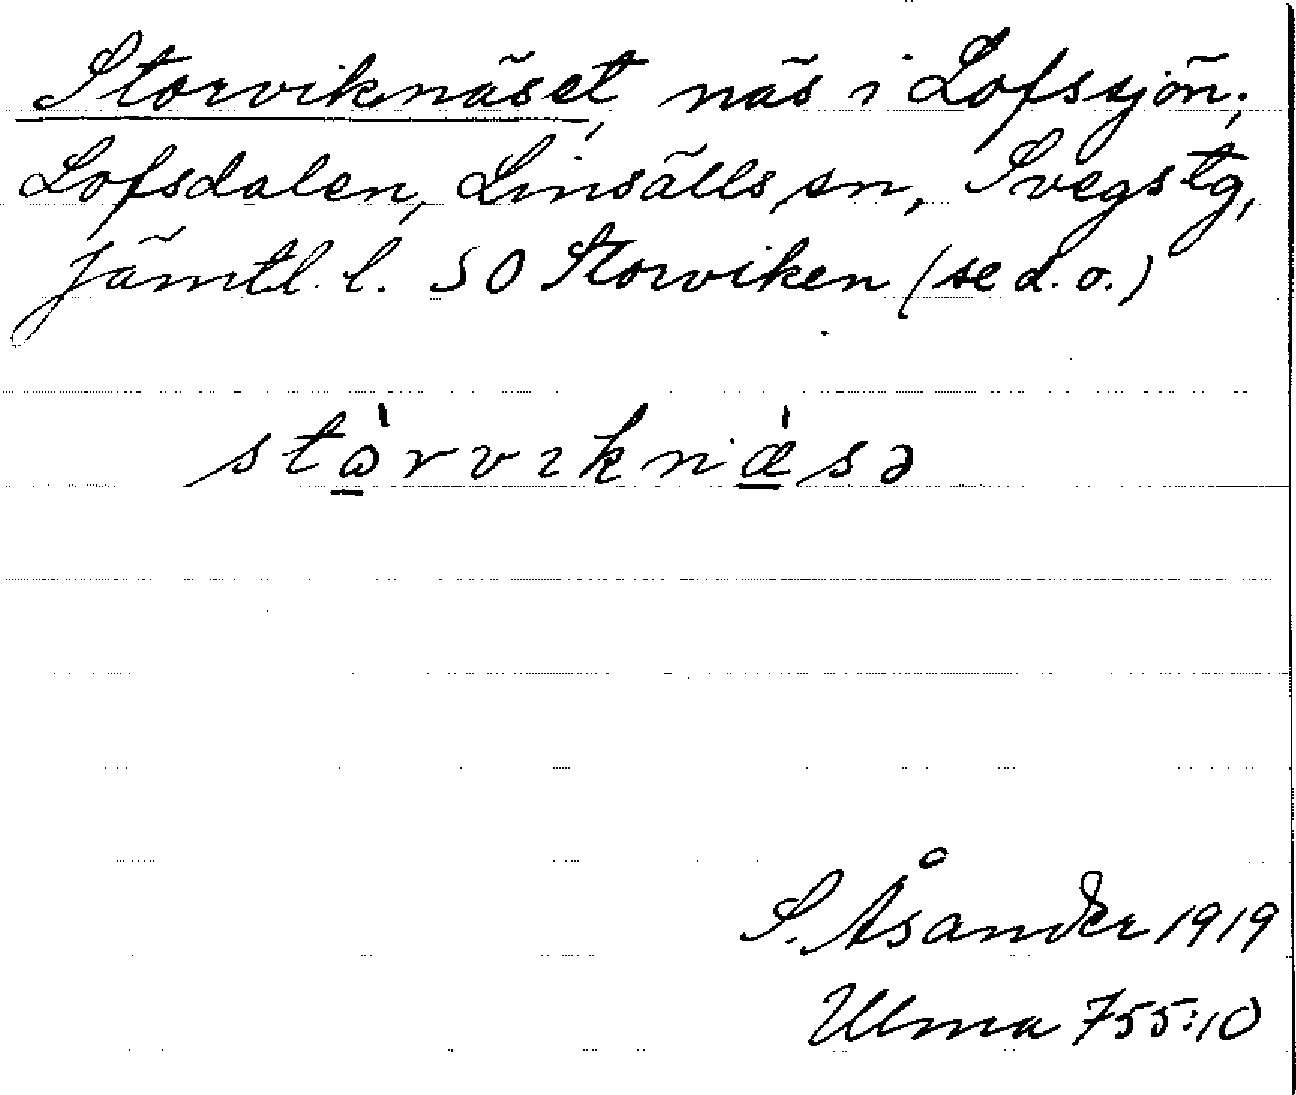 Storviknäset, näs i Lofssjön;
Lofsdalen, Linsälls sn, Svegs tg,
Jämtl. l. SO Storviken (se d. o.)
stɷ̠̀rvɪknæ̠̀sə
S. Åsander 1919
Ulma 755:10